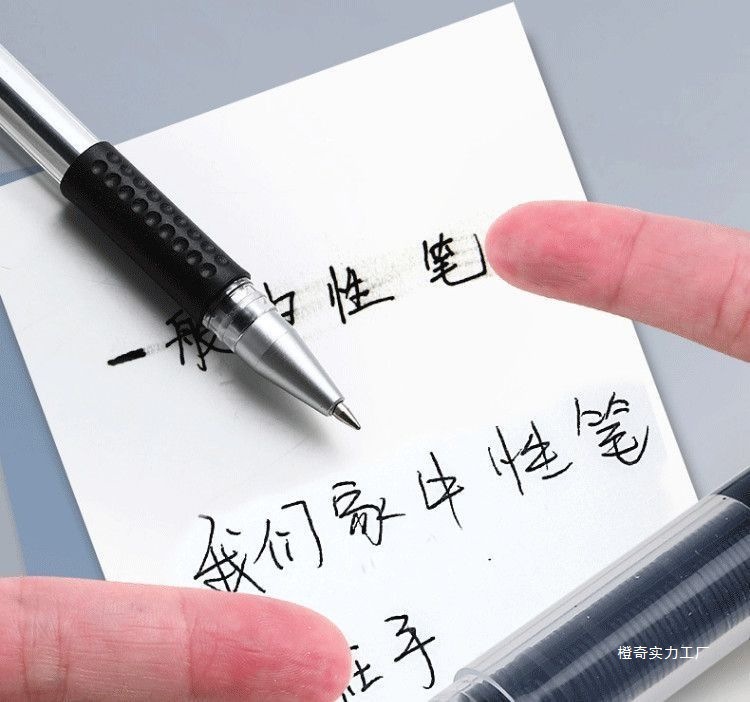 一般中性笔
我们家中性笔
手
橙奇实力工厂